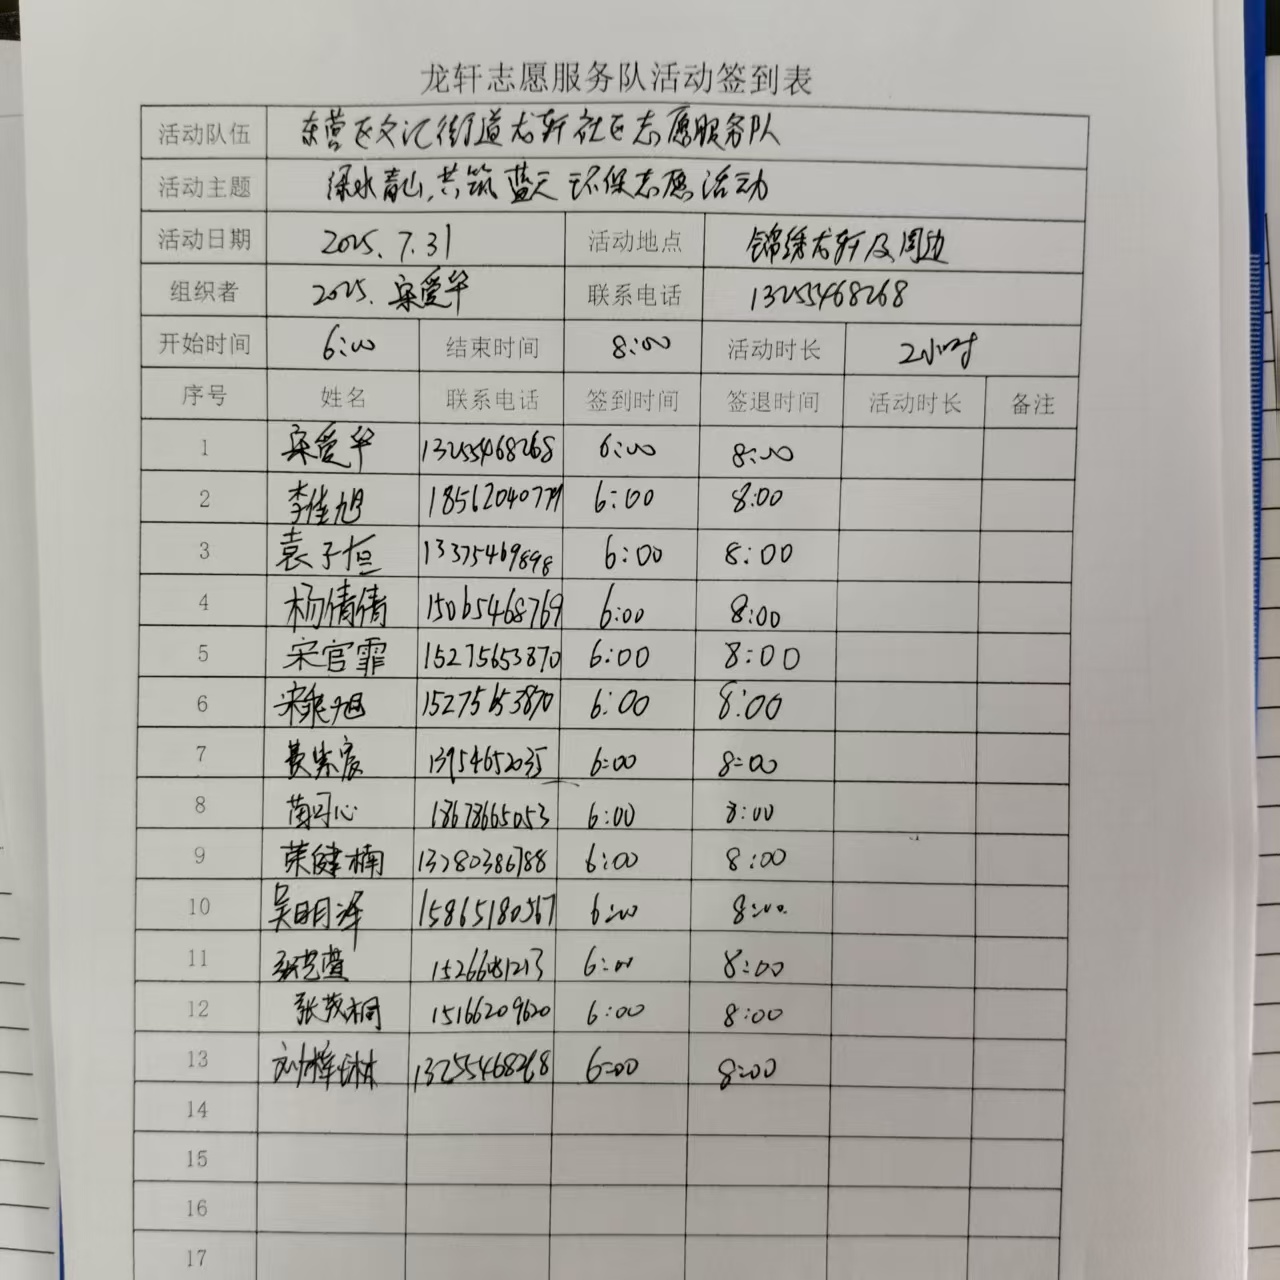 龙轩志愿服务队活动签到表
活动队伍 东营区文汇街道龙轩社区志愿服务队
活动主题 绿水青山,共筑蓝天 环保志愿活动
活动日期 2025.7.31 活动地点 锦绣龙轩及周边
组织者 2025. 宋爱华 联系电话 13255468268
开始时间 6:00 结束时间 8:00 活动时长 2小时
序号 姓名 联系电话 签到时间 签退时间 活动时长 备注
1 宋爱华 13255468268 6:00 8:00
2 李佳旭 6:00 8:00
3 袁子恒 13375469898 6:00 8:00
4 杨倩倩 15065468769 6:00 8:00
5 宋官霏 15275653870 6:00 8:00
6 15275653870 6:00 8:00
7 13954652035 6:00 8:00
8 18678665053 6:00 8:00
9 荣健楠 13280386788 6:00 8:00
10 吴明泽 15865180567 6:00 8:00
11 6:00 8:00
12 张茂桐 15166209620 6:00 8:00
13 13255468268 6:00 8:00
14
15
16
17